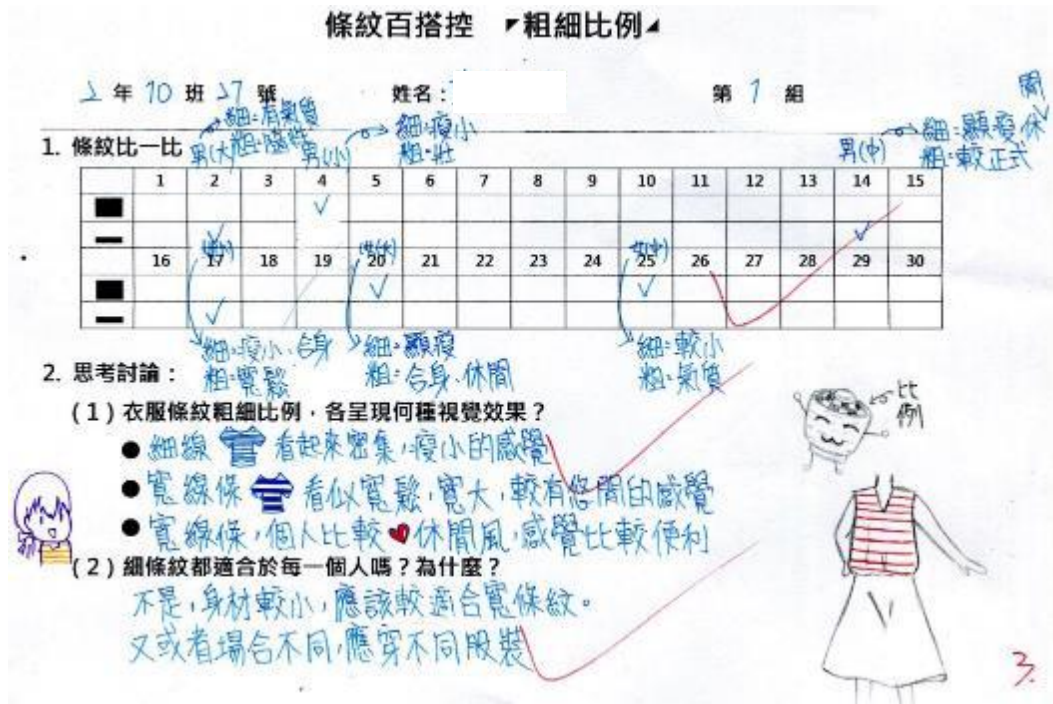 條紋百搭控 「粗細比例」
2 年 10 班 27 號 姓名： 第 1 組
細：有氣質
粗：隨性
男(大)
細：瘦小
粗：壯
男(小)
細：顯瘦、休閒
粗：較正式
男(中)
1. 條紋比一比
1 2 3 4 5 6 7 8 9 10 11 12 13 14 15
✓
✓ ✓
女(小) 女(大) 女(中)
16 17 18 19 20 21 22 23 24 25 26 27 28 29 30
✓ ✓
✓
細：瘦小、合身
粗：寬鬆
細：顯瘦
粗：合身、休閒
細：較小
粗：氣質
2. 思考討論：
(1) 衣服條紋粗細比例，各呈現何種視覺效果？
● 細線 看起來密集，瘦小的感覺
● 寬線條 看似寬鬆，寬大，較有悠閒的感覺
● 寬線條，個人比較♥休閒風，感覺比較便利
比例
(2) 細條紋都適合於每一個人嗎？為什麼？
不是，身材較小，應該較適合寬條紋。
又或者場合不同，應穿不同服裝
3.